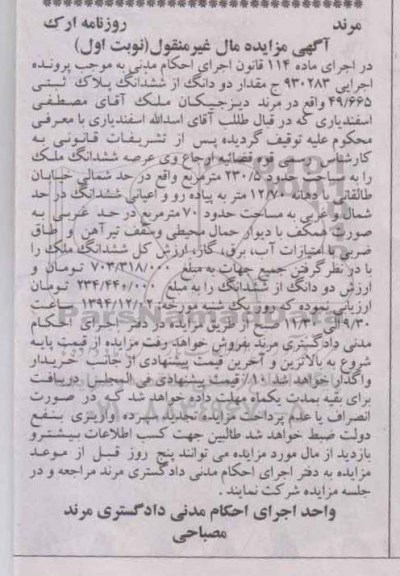 مرند روزنامه ارک
آگهی مزایده مال غیرمنقول(نوبت اول)
در اجرای ماده ۱۱۴ قانون اجرای احکام مدنی به موجب پرونده
اجرایی ۹۳۰۲۸۳ ج مقدار دو دانگ از ششدانگ پلاک ثبتی
۴۹/۶۶۵ واقع در مرند دیزجیکان ملک آقای مصطفی
اسفندیاری که در قبال طلب آقای اسدالله اسفندیاری با معرفی
محکوم علیه توقیف گردیده پس از تشریفات قانونی به
کارشناس رسمی قوه قضائیه ارجاع وی عرصه ششدانگ ملک
را به مساحت حدود ۲۳۰/۵ مترمربع واقع در حد شمالی خیابان
طالقانی با دهانه ۱۲/۷۰ متر به پیاده رو و اعیانی ششدانگ در حد
شمال و غربی به مساحت حدود ۷۰ مترمربع در حد غربی به
صورت همکف با دیوار حمال محیطی وسقف تیرآهن و طاق
ضربی با امتیازات آب، برق، گاز، ارزش کل ششدانگ ملک را
با در نظرگرفتن جمیع جهات به مبلغ ۷۰۳/۳۱۸/۰۰۰ تومان و
ارزش دو دانگ از ششدانگ را به مبلغ ۲۳۴/۴۴۰/۰۰۰ تومان
ارزیابی نموده که بروز یک شنبه مورخه: ۱۳۹۴/۱۲/۰۲ ساعت
۹/۳۰ الی ۱۱/۳۰ صبح از طریق مزایده در دفتر اجرای احکام
مدنی دادگستری مرند بفروش خواهد رفت مزایده از قیمت پایه
شروع به بالاترین و آخرین قیمت پیشنهادی از جانب خریدار
واگذار خواهد شد ۱۰٪ قیمت پیشنهادی فی المجلس دریافت
برای بقیه بمدت یکماه مهلت داده خواهد شد که در صورت
انصراف یا عدم پرداخت مزایده تجدید سپرده واریزی بنفع
دولت ضبط خواهد شد طالبین جهت کسب اطلاعات بیشترو
بازدید از مال مورد مزایده می توانند پنج روز قبل از موعد
مزایده به دفتر اجرای احکام مدنی دادگستری مرند مراجعه و در
جلسه مزایده شرکت نمایند .
واحد اجرای احکام مدنی دادگستری مرند
مصباحی
ParsNamadData